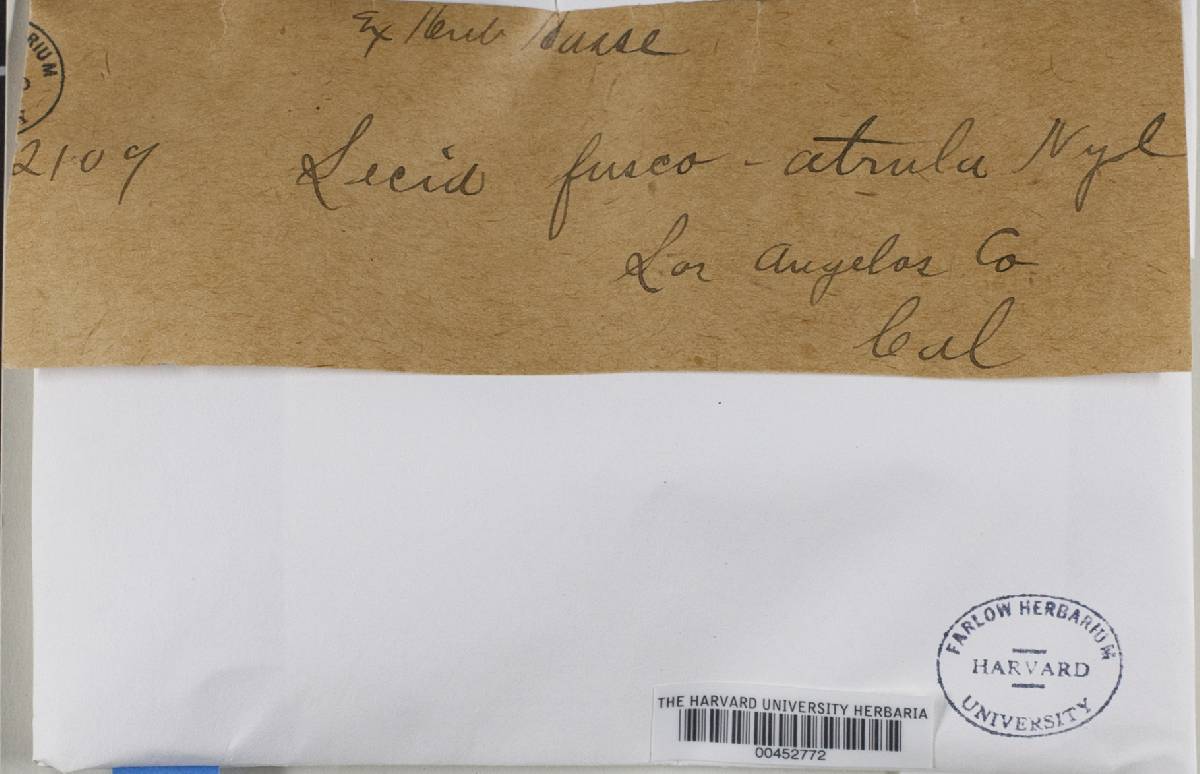 Ex Herb Hasse
RIUM
2109 Lecid fusco-atrula Nyl
Los Angelos Co
Cal
FARLOW HERBARIUM
HARVARD
UNIVERSITY
THE HARVARD UNIVERSITY HERBARIA
00452772